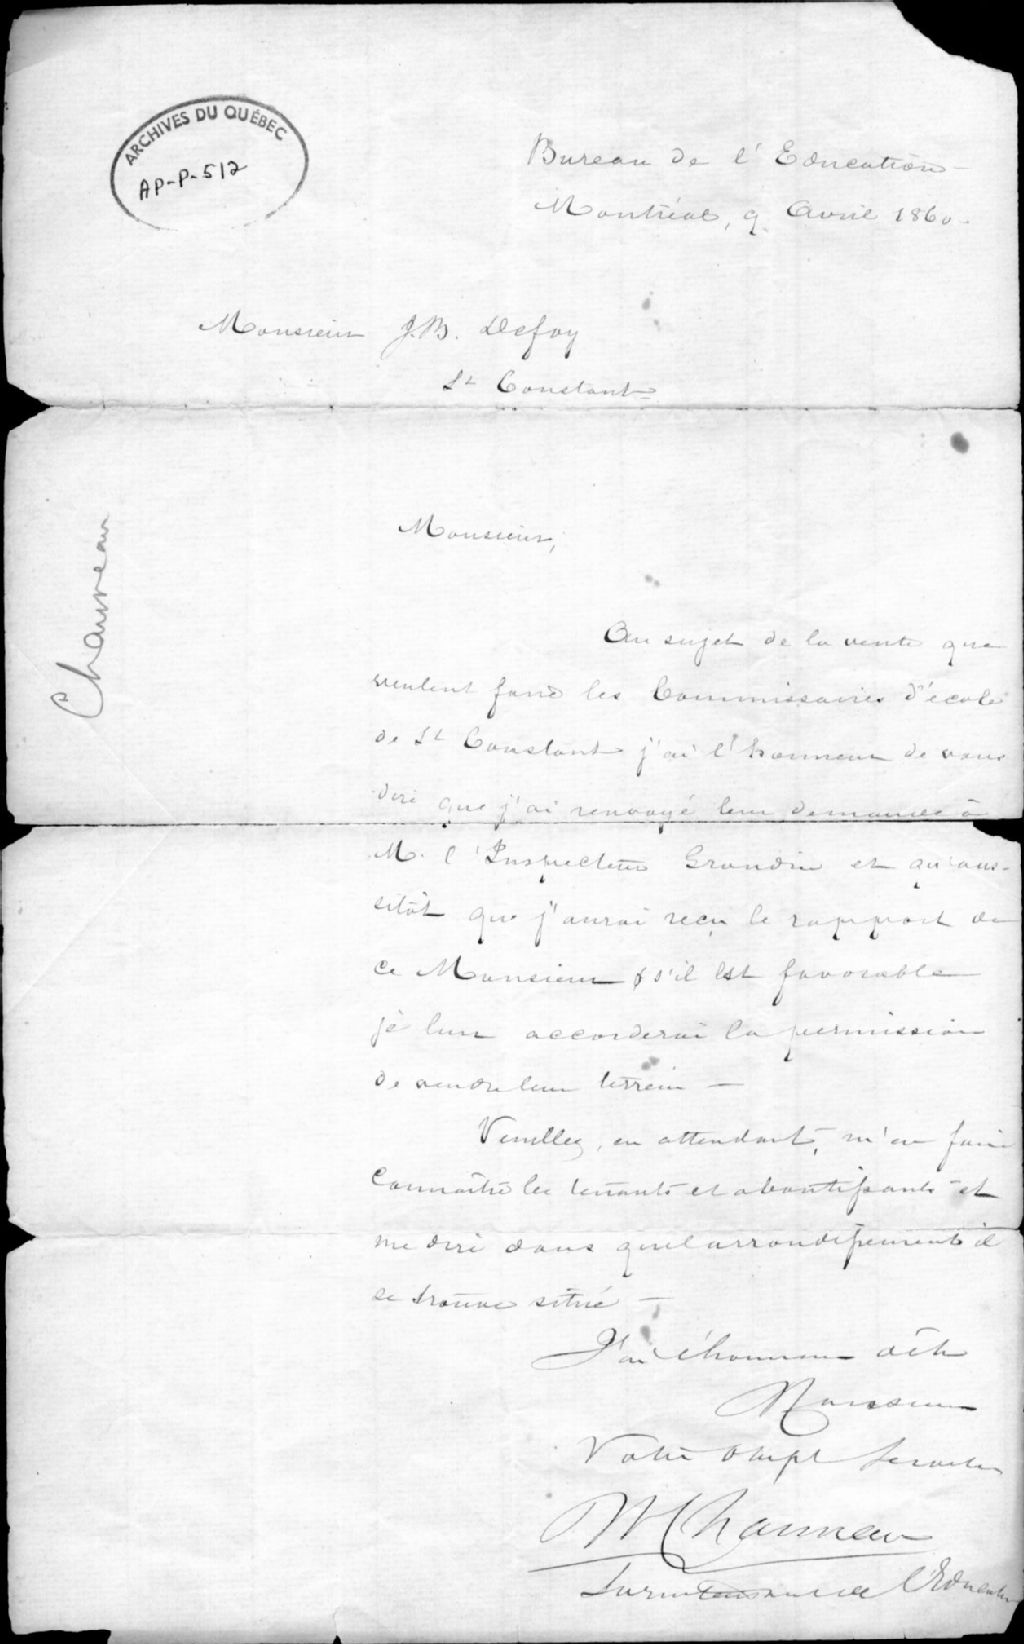 ARCHIVES DU QUÉBEC
AP-P-512
Bureau de l'Education
Montréal, 9 Avril 1860
Monsieur J.B. Defoy
St Constant
Chauveau
Monsieur,
Au sujet de la vente que
veulent faire les Commissaires d'école
de St Constant j'ai l'honneur de vous
dire que j'ai renvoyé leur demande à
M. l'Inspecteur Grondin et qu'aus-
sitôt que j'aurai reçu le rapport de
ce Monsieur & s'il est favorable
je leur accorderai la permission
de vendre leur terrein —
Veuillez, en attendant, m'en faire
connaître les tenants et aboutissants et
me dire dans quel arrondissement il
se trouve situé —
J'ai l'honneur d'être
Monsieur
Votre obéist Serviteur
Chauveau
Surintendant de l'Education